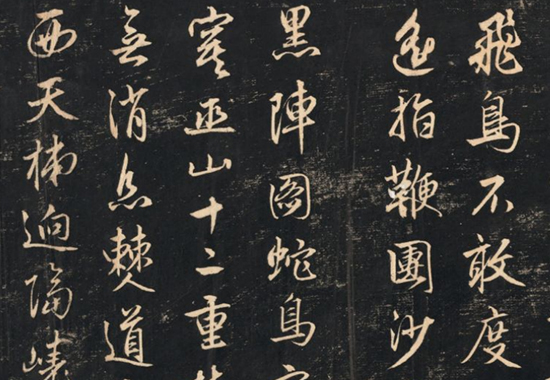 飛鳥不敢度
指鞭團沙
黑陣圖蛇鳥
寞巫山十二重
無消息僰道
西天梯迥隔